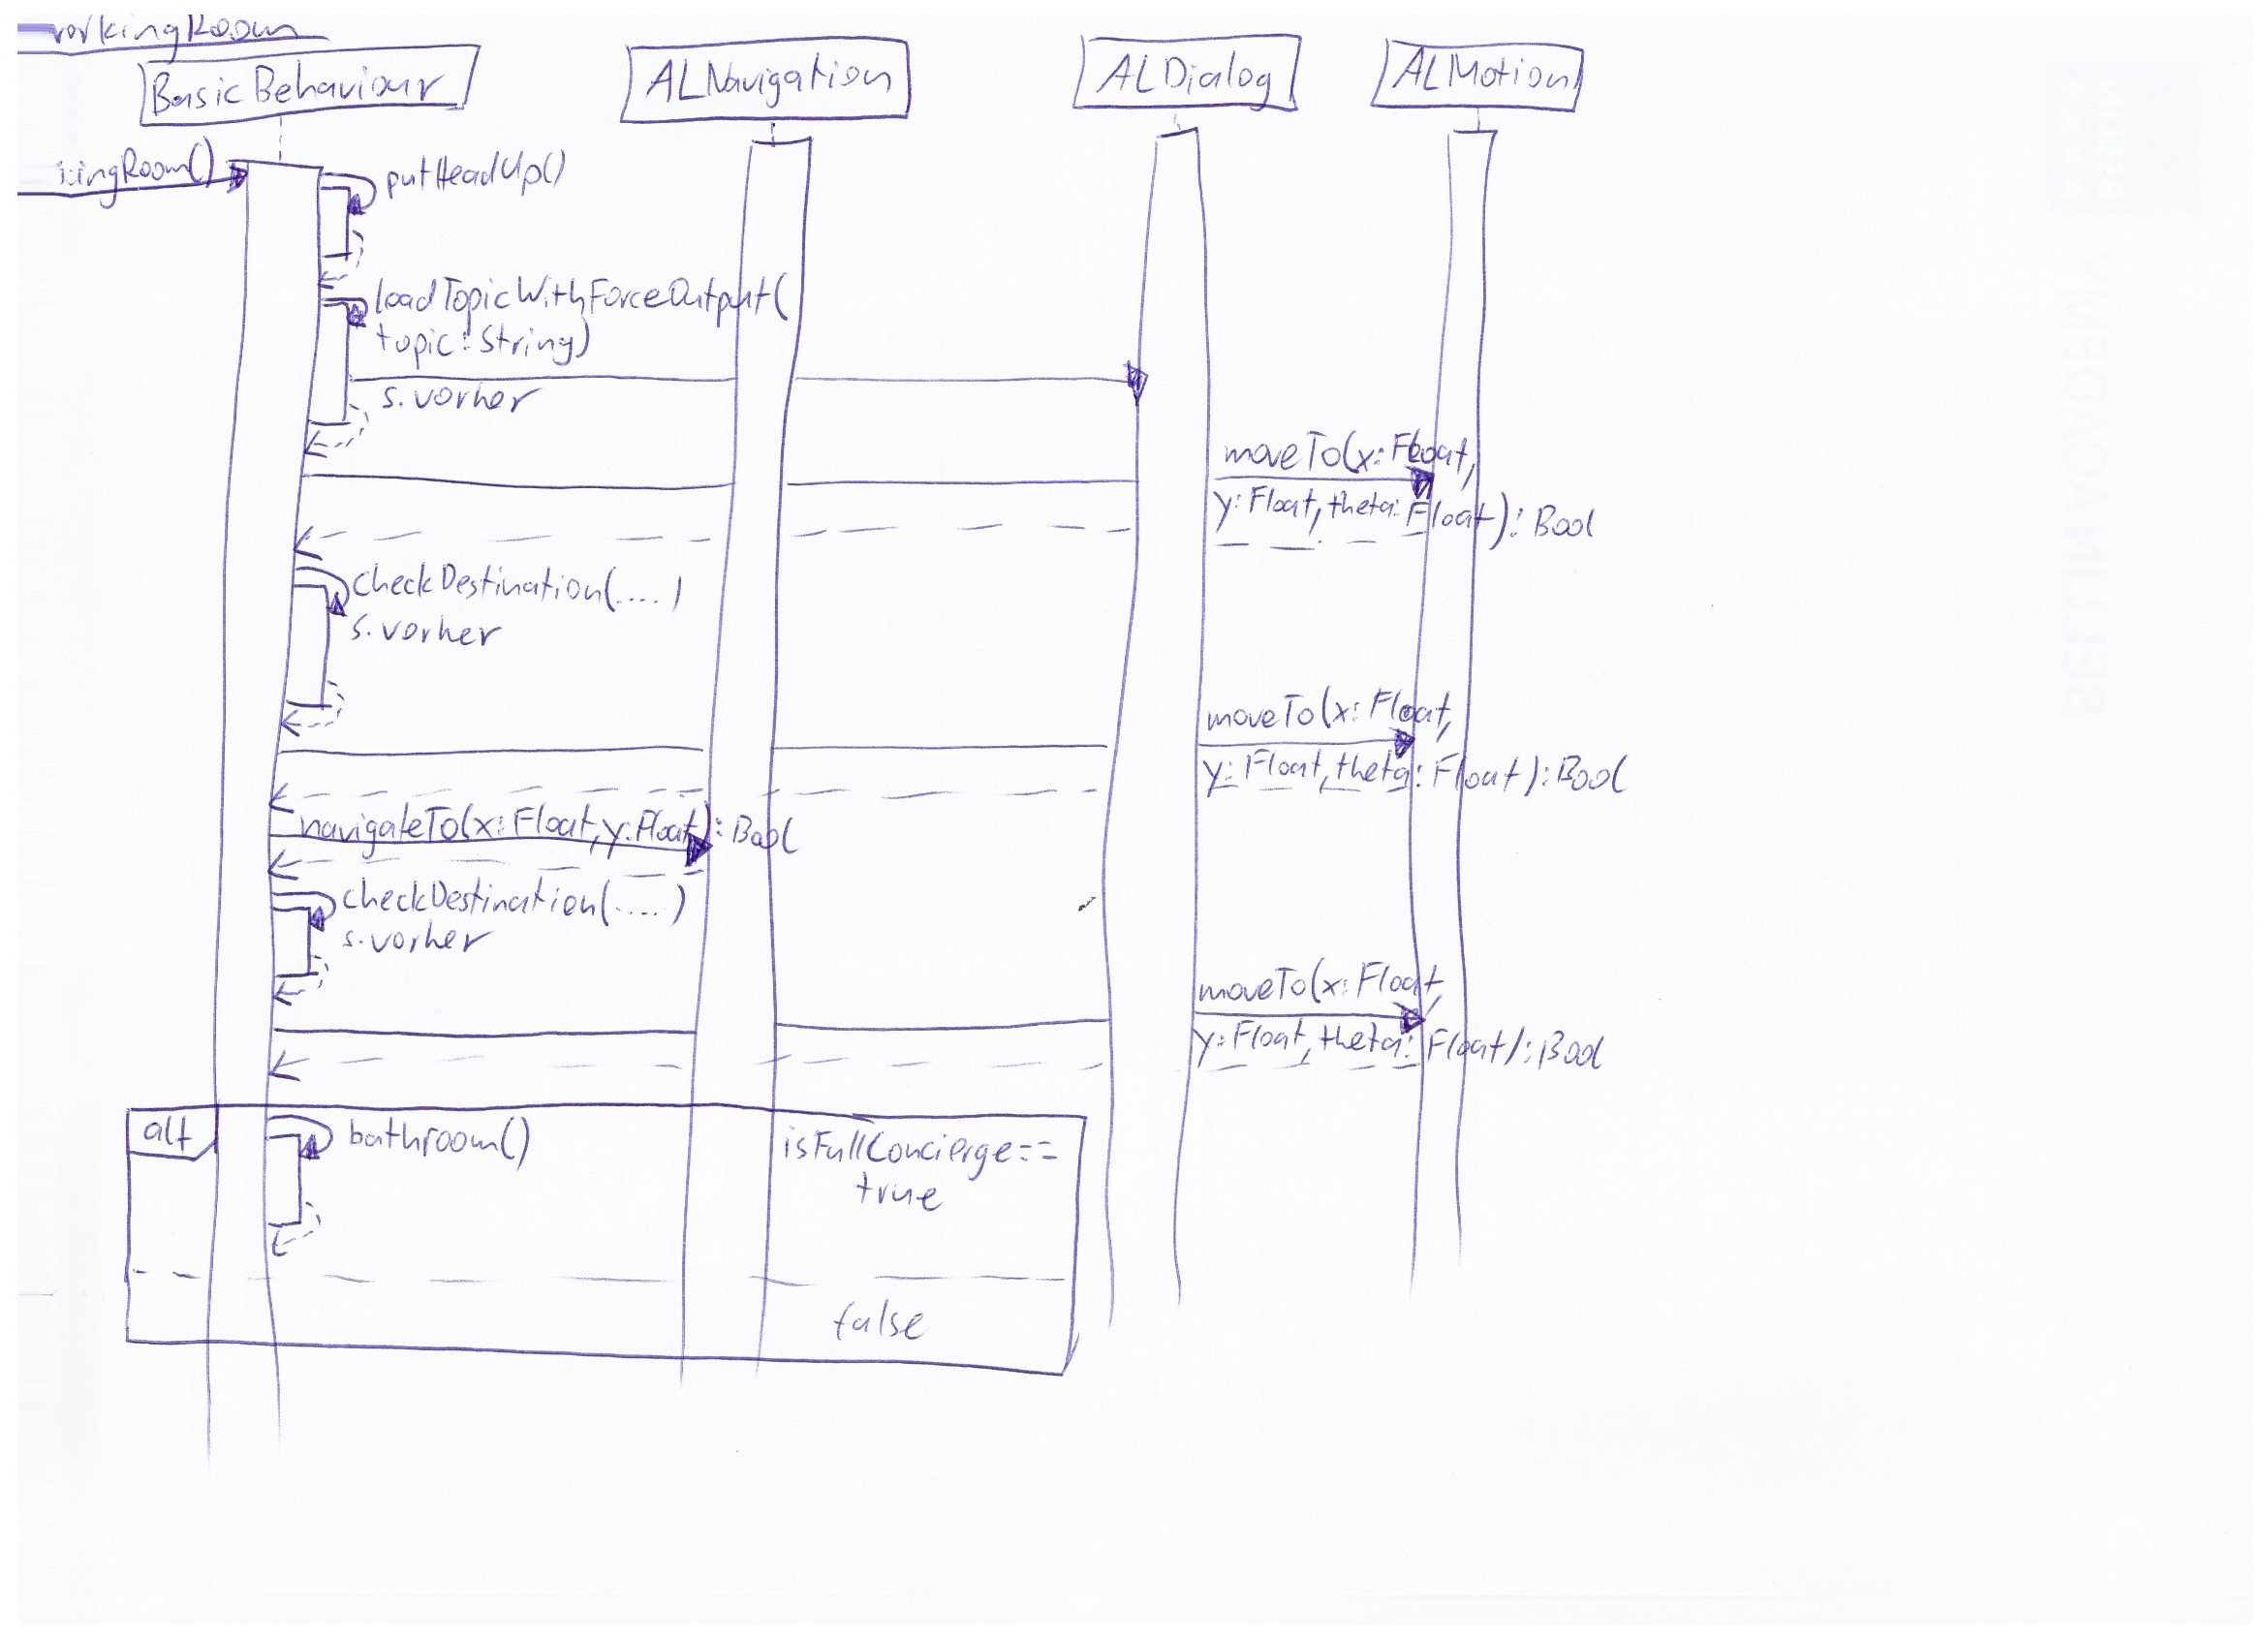 workingRoom
BasicBehaviour
ALNavigation
ALDialog
ALMotion
kingRoom()
putHeadUp()
loadTopicWithForceOutput(
topic:String)
s.vorher
moveTo(x:Float,
y:Float,theta:Float):Bool
checkDestination(.....)
s.vorher
moveTo(x:Float,
y:Float,theta:Float):Bool
navigateTo(x:Float,y:Float):Bool
checkDestination(.....)
s.vorher
moveTo(x:Float,
y:Float,theta:Float):Bool
alt
bathroom()
isFullConcierge==
true
false